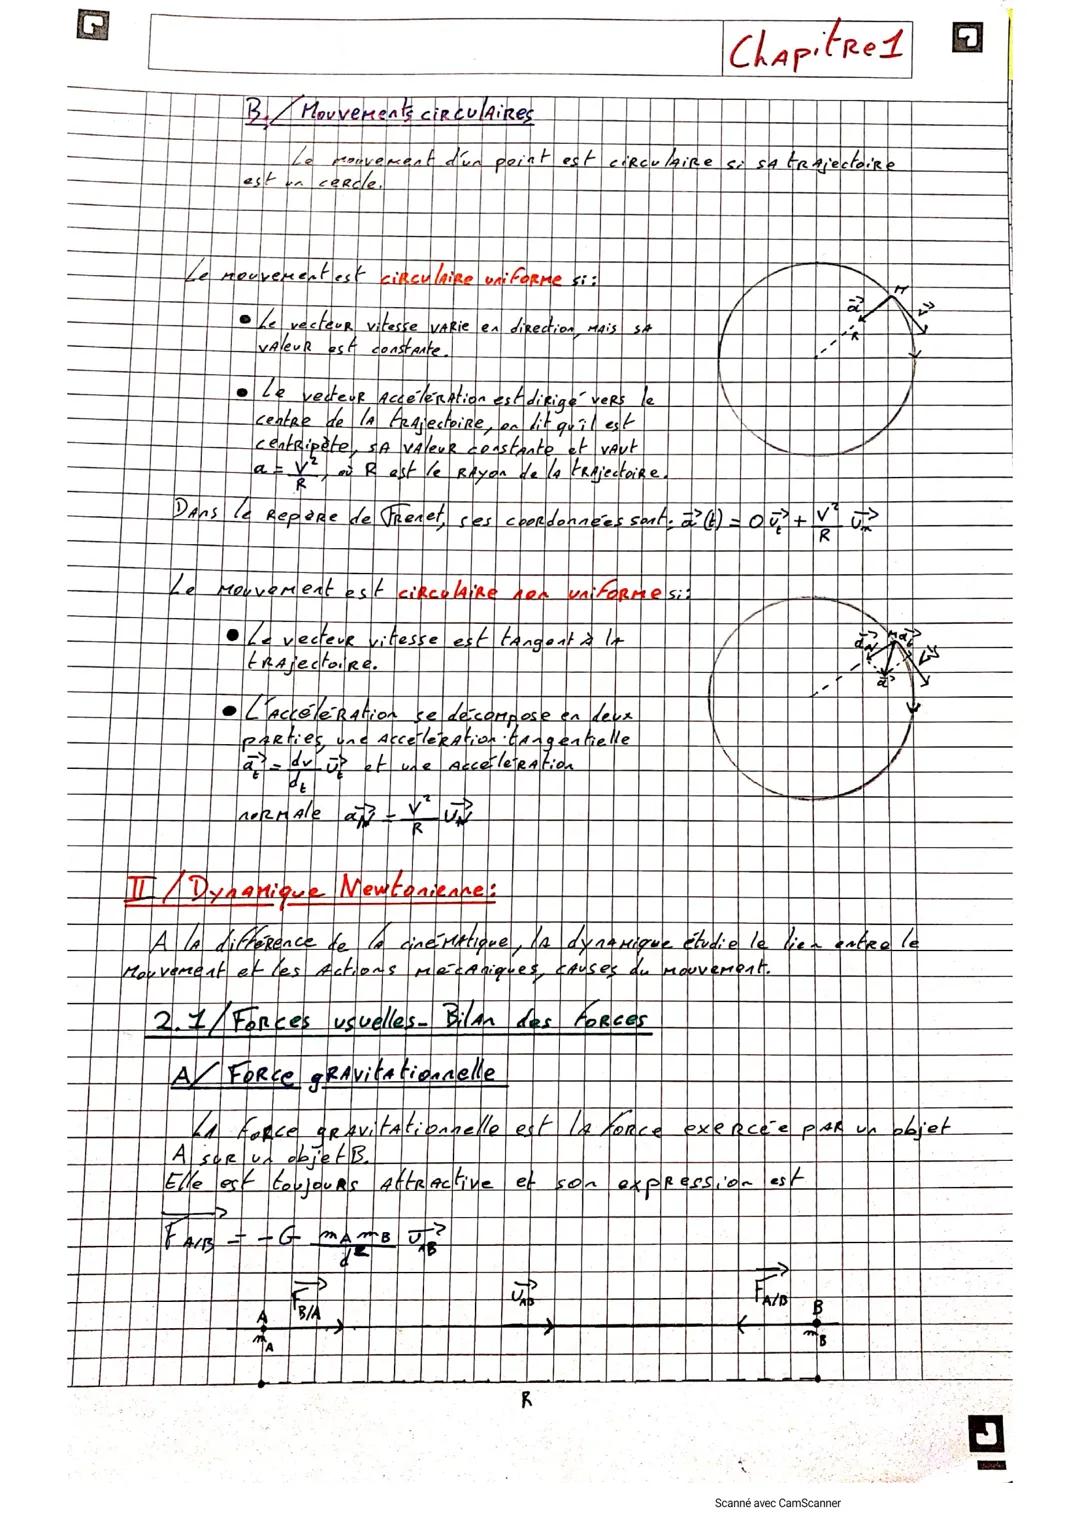 Chapitre 1
B/ Mouvements circulaires
Le mouvement d'un point est circulaire si sa trajectoire
est un cercle.
Le mouvement est circulaire uniforme si :
• Le vecteur vitesse varie en direction, mais sa
valeur est constante.
• Le vecteur accélération est dirigé vers le
centre de la trajectoire, on dit qu'il est
centripète, sa valeur constante et vaut
a = V²/R, où R est le rayon de la trajectoire.
M
a⃗
v⃗
R
Dans le repère de Frenet, ses coordonnées sont : a⃗(t) = 0 u⃗t + V²/R u⃗n
Le mouvement est circulaire non uniforme si :
• Le vecteur vitesse est tangent à la
trajectoire.
• L'accélération se décompose en deux
parties, une accélération tangentielle
a⃗t = dv/dt u⃗t et une accélération
normale a⃗N = V²/R u⃗N
M
a⃗N
a⃗t
v⃗
a⃗
II / Dynamique Newtonienne :
A la différence de la cinématique, la dynamique étudie le lien entre le
mouvement et les actions mécaniques, causes du mouvement.
2.1/ Forces usuelles - Bilan des forces
A/ Force gravitationnelle
La force gravitationnelle est la force exercée par un objet
A sur un objet B.
Elle est toujours attractive et son expression est
F⃗A/B = - G mA mB / d² u⃗AB
F⃗B/A
u⃗AB
F⃗A/B
A
B
mA
mB
R
Scanné avec CamScanner